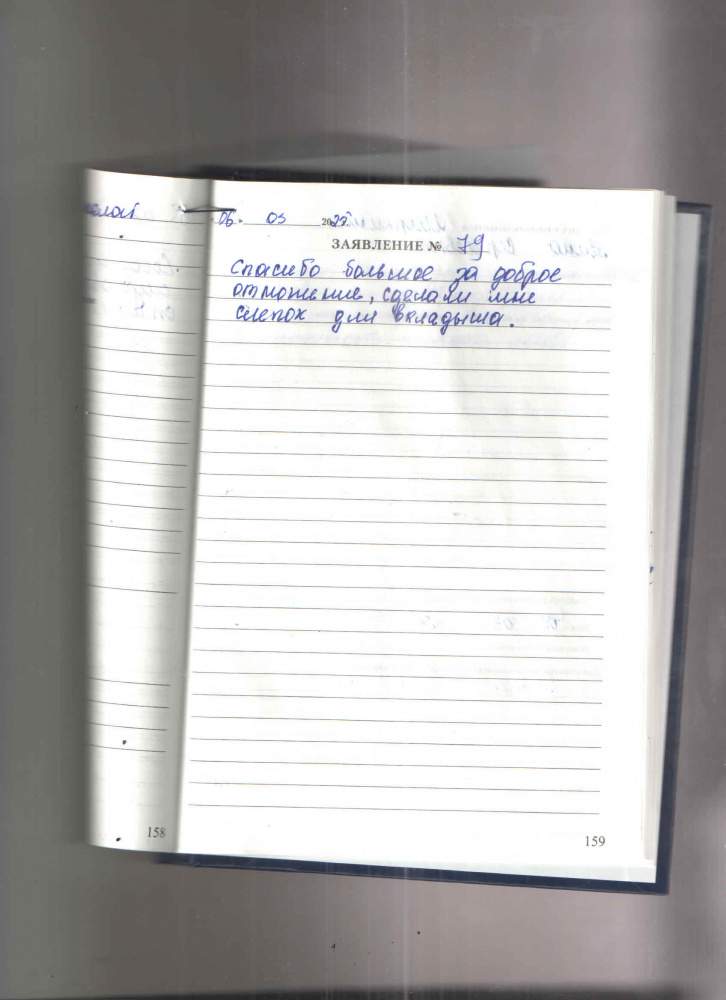 06. 03 2025
ЗАЯВЛЕНИЕ № 79
Спасибо большое за доброе
отношение, сделали мне
слепок для вкладыша.
158
159